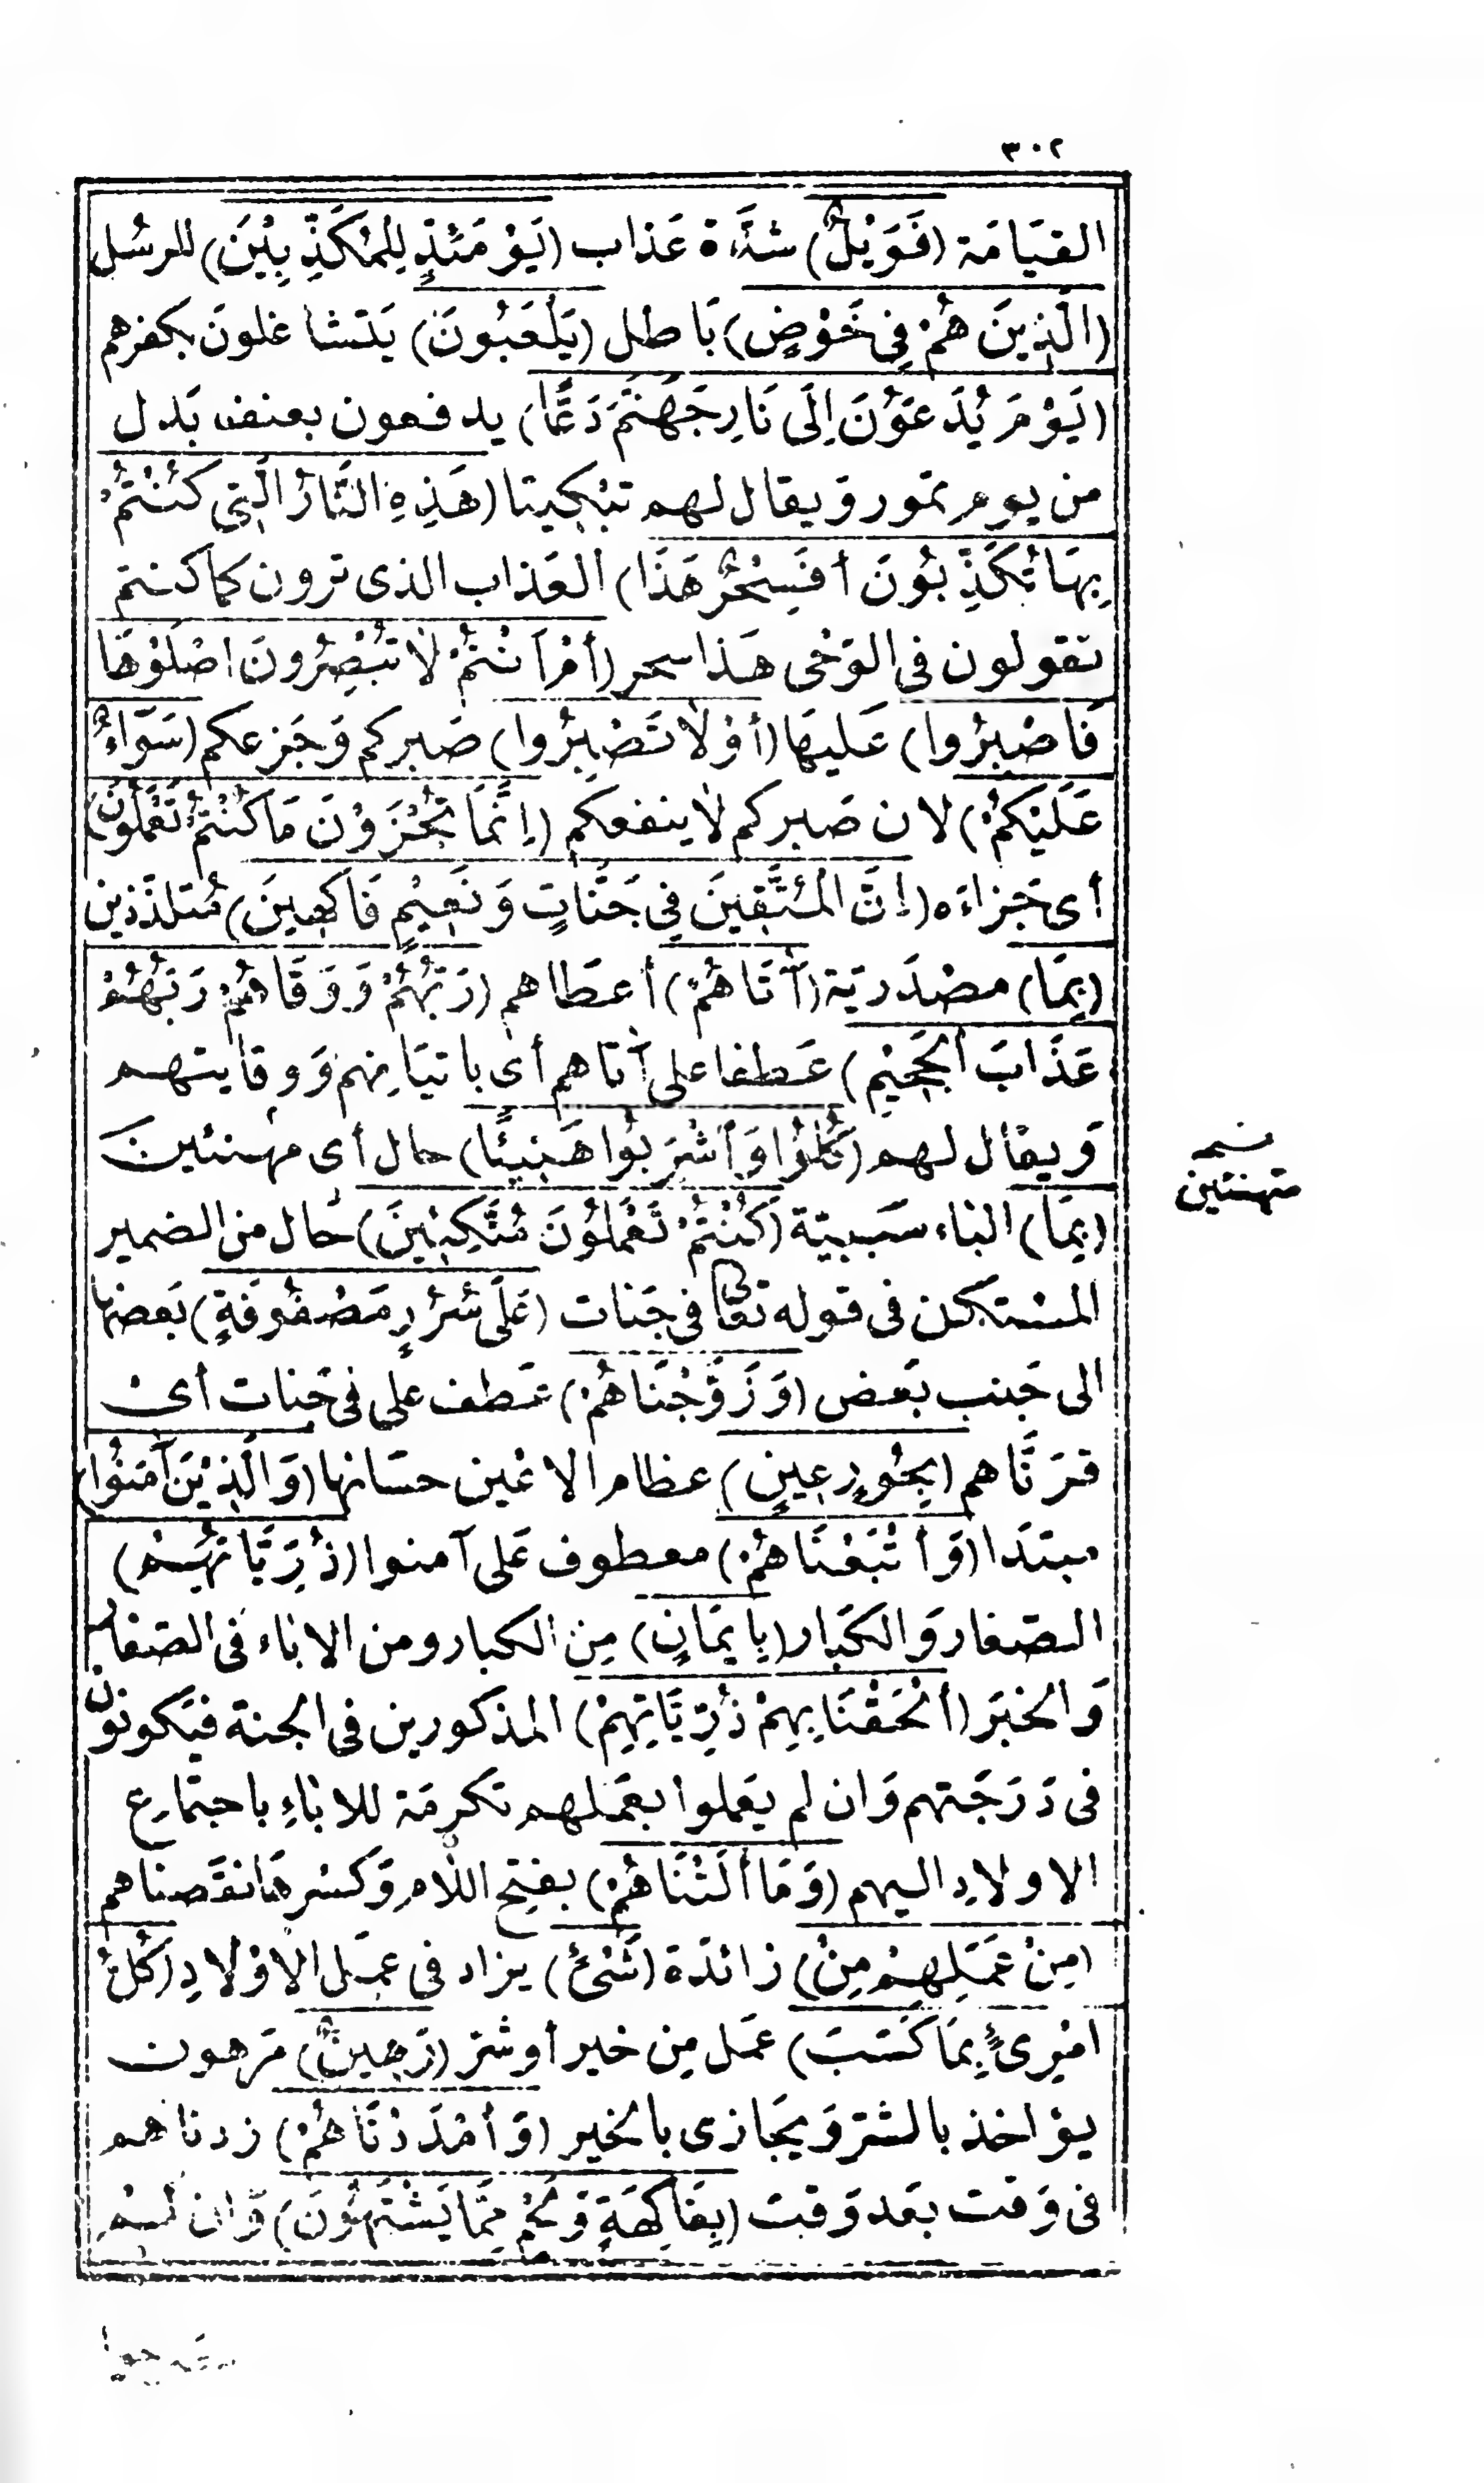 ٣٠٢
القيَامَة (فَوَيْلٌ) شدَّة عَذاب (يَوْمَئِذٍ لِلمُكَذِّبِيْنَ) للرسُل
(الَّذِينَ هُمْ فِي خَوْضٍ) بَاطل (يَلْعَبُونَ) يَتشاغلونَ بكفرهم
(يَوْمَ يُدَعَوُّنَ اِلَى نَارِ جَهَنَّمَ دَعًّا) يدفعون بعنف بَدل
من يوم تمور وَيقال لهم تبْكيتا (هَذِهِ النَّارُ الَّتِي كُنْتُمْ
بِهَا تُكَذِّبُونَ أفَسِحْرٌ هَذَا) العَذاب الذى ترون كما كنتم
تقولون فى الوَحْى هَذا سحر (أمْ أَنْتُمْ لَا تُبْصِرُونَ اصْلَوْهَا
فَاصْبِرُوا) عَليهَا (أوْ لَا تَصْبِرُوا) صَبركم وَجَزعكم (سَوَّاءٌ
عَلَيْكُمْ) لان صَبركم لَا ينفعكم (اِنَّمَا تُجْزَوْنَ مَا كُنْتُمْ تَعْمَلُونَ)
أى جَزاءَه (اِنَّ الْمُتَّقِينَ فِي جَنَّاتٍ وَنَعِيْمٍ فَاكِهِينَ) مُتلذّذين
(بِمَا) مصْدَريَة (آتَاهُمْ) أعطَاهم (رَبُّهُمْ وَوَقَاهُمْ رَبُّهُمْ
عَذَابَ الْجَحِيْمِ) عَطفا على آتاهم أى باتيَانهم وَوقايتهم
وَيقال لهم (كُلُوا وَاشْرَبُوا هَنِيئًا) حال أى مهنئين
(بِمَا) الباء سَببيّة (كُنْتُمْ تَعْمَلُونَ مُتَّكِئِينَ) حَال من الضمير
المستكن فى قوله تعَالى فى جَنات (عَلَى سُرُرٍ مَصْفُوفَةٍ) بَعضها
الى جَنب بَعض (وَزَوَّجْنَاهُمْ) عَطف على فى جَنات أىْ
قرَنَّاهم (بِحُورٍ عِينٍ) عظام الاعْين حسَانها (وَالَّذِيْنَ آمَنُوا)
مبتدَا (وَأَتْبَعْنَاهُمْ) معطوف عَلى آمنوا (ذُرِّيَّاتِهِمْ)
الصّغار وَالكبَار (بِايمَانٍ) مِن الكبار ومن الابَاء فى الصّغار
وَالخبَر (ألْحَقْنَا بِهِمْ ذُرِّيَّاتِهِمْ) المذكورين فى الجنة فيَكونون
فى دَرَجَتهم وَان لم يَعملوا بعَملهم تكرمَة للابَاءِ باجتماع
الاولادِ اليهم (وَمَا ألَتْنَاهُمْ) بفتح اللّام وَكسْرهَا نقَصناهم
(مِنْ عَمَلِهِمْ مِنْ) زائدَة (شَيْءٍ) يزاد فى عمَل الاوْلادِ (كُلُّ
امْرِىءٍ بِمَا كَسَبَ) عمَل مِن خير أوشرّ (رَهِينٌ) مَرهون
يؤاخذ بالشرّ وَيجَازى بالخير (وَأمْدَدْنَاهُمْ) زدناهم
فى وَقت بعَد وَقت (بِفَاكِهَةٍ وَلَحْمٍ مِمَّا يَشْتَهُونَ) وَان لم
متهنئين